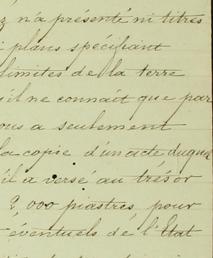 z n'a présenté ni titres
i plans spécifiant
limites de la terre
'il ne connait que par
ous a seulement
la copie d'un acte duquel
'il a versé au trésor
2,000 piastres pour
éventuels de l'Etat